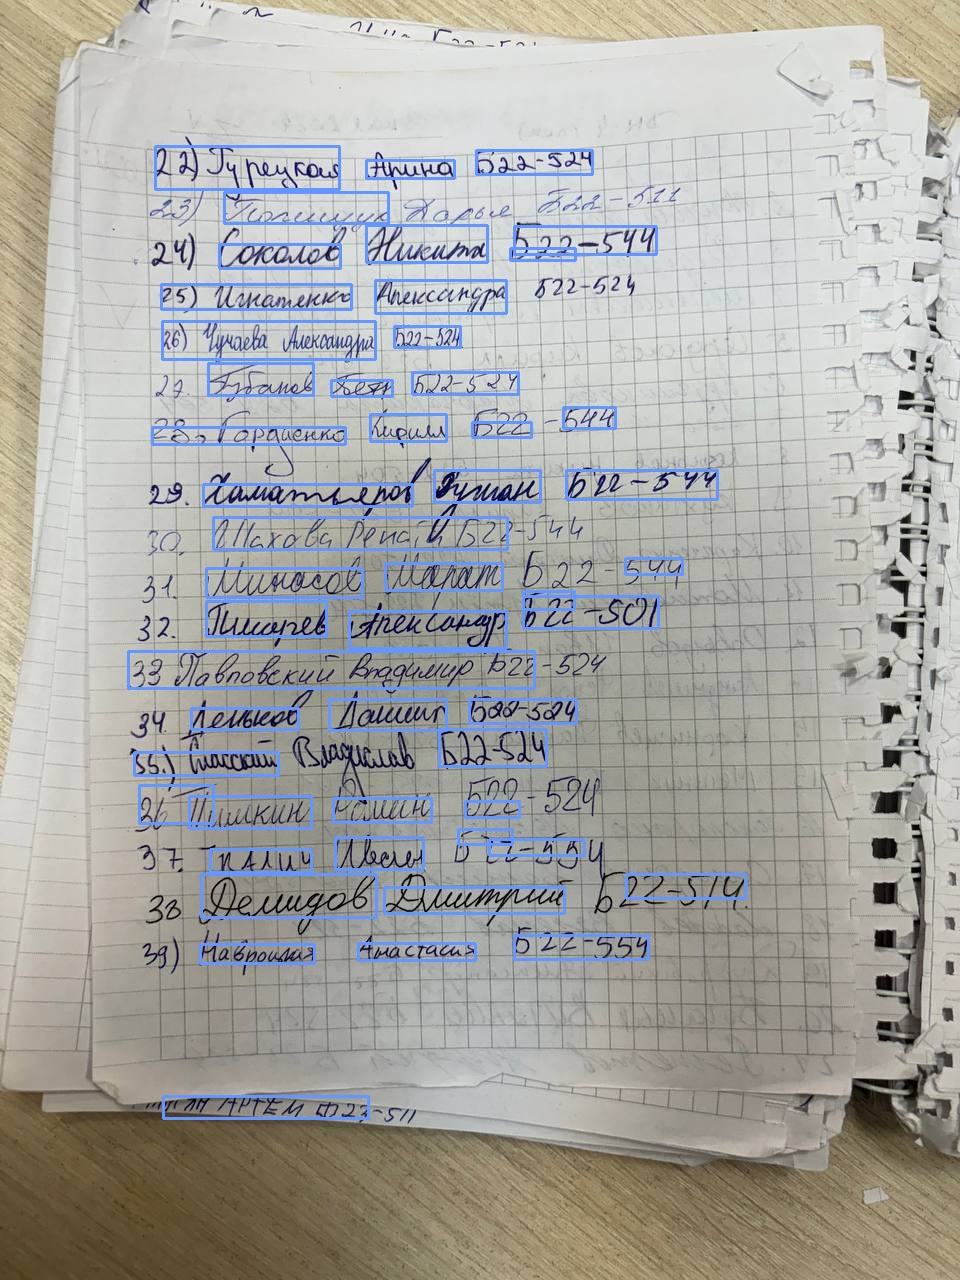 22) Турецкая Арина Б22-524
23) Полищук Дарья Б22-511
24) Соколов Никита Б22-544
25) Игнатенко Александра Б22-524
26) Чучаева Александра Б22-524
27. Губанов Б22-524
28. Гордиенко Кирилл Б22-544
29. Хаматьяров Б22-544
30. Шахова Рената Б22-544
31. Минасов Марат Б22-544
32. Писарев Александр Б22-501
33 Павловский Владимир Б22-524
34. Леньков Б22-524
35.) Спасский Владислав Б22-524
36 Пушкин Роман Б22-524
37. Ткалич Б22-554
38 Демидов Дмитрий Б22-514.
39) Навроцкая Анастасия Б22-554
АРТЕМ Б22-511